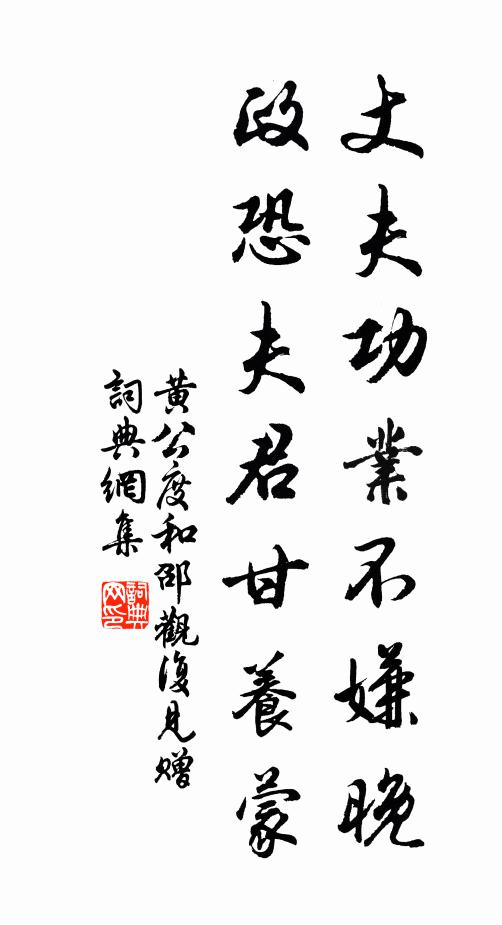 丈夫功業不嫌晚
政恐夫君甘養蒙
黃公度和邵觀復見贈
詞典網集
詞典
网印